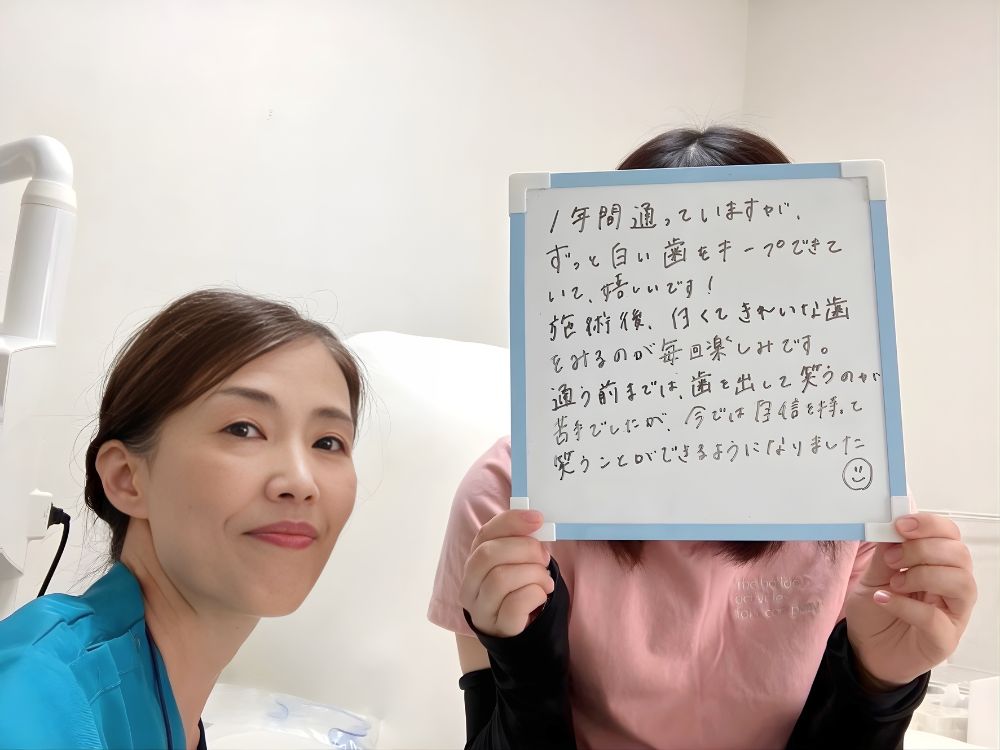 1年間通っていますが、
ずっと白い歯をキープできて
いて、嬉しいです!
施術後、白くてきれいな歯
をみるのが毎回楽しみです。
通う前までは、歯を出して笑うのが
苦手でしたが、今では自信を持って
笑うことができるようになりました